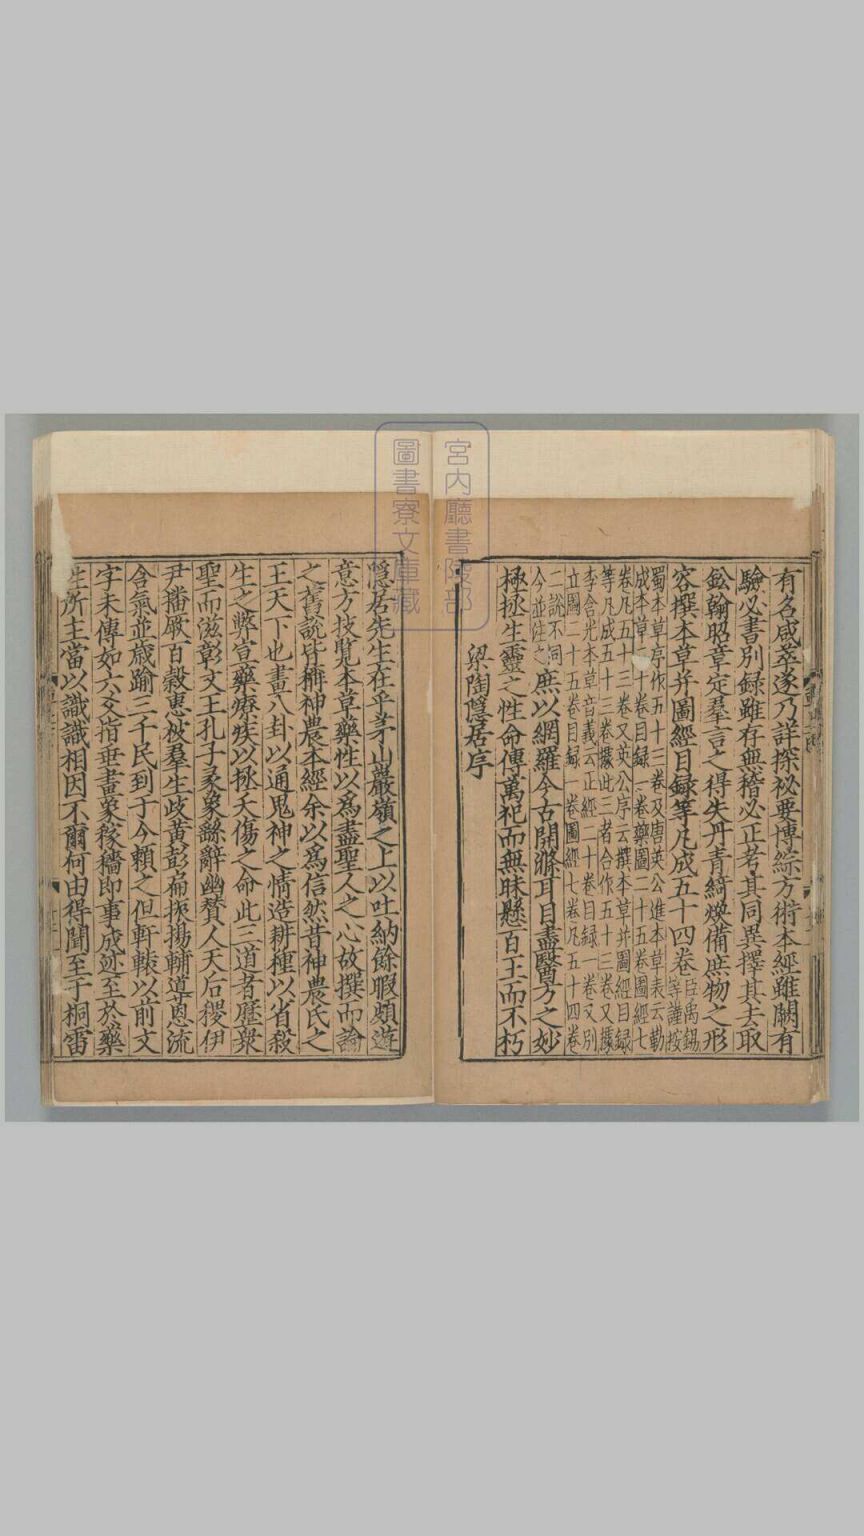 有名咸萃遂乃詳探祕要博綜方術本經雖闕有
驗必書別録雖存無稽必正考其同異擇其去取
鈆翰昭章定羣言之得失丹青綺煥備庶物之形
容撰本草并圖經目録等凡成五十四卷臣禹錫等謹按
蜀本草序作五十三卷及唐英公進本草表云勒
成本草二十卷目録一卷藥圖二十五卷圖經七
卷凡五十三卷又英公序云撰本草并圖經目録
等凡成五十三卷據此三者合作五十三卷又據
李含光本草音義云正經二十卷目録一卷又別
立圖二十五卷目録一卷圖經七卷凡五十四卷
二說不同
今並注之
庶以網羅今古開滌耳目盡醫方之妙
極拯生靈之性命傳萬祀而無昧懸百王而不朽
梁陶隱居序
隱居先生在乎茅山巖嶺之上以吐納餘暇頗遊
意方技覽本草藥性以爲盡聖人之心故撰而論
之舊說皆稱神農本經余以爲信然昔神農氏之
王天下也畫八卦以通鬼神之情造耕種以省殺
生之弊宣藥療疾以拯夭傷之命此三道者歷衆
聖而滋彰文王孔子彖象繇辭幽賛人天后稷伊
尹播厥百榖惠被羣生歧黄彭扁振揚輔導恩流
含氣並歲踰三千民到于今頼之但軒轅以前文
字未傳如六爻指垂畫象稼穡即事成迹至於藥
性所主當以識識相因不爾何由得聞至于桐雷
宮内廳書陵部
圖書寮文庫藏